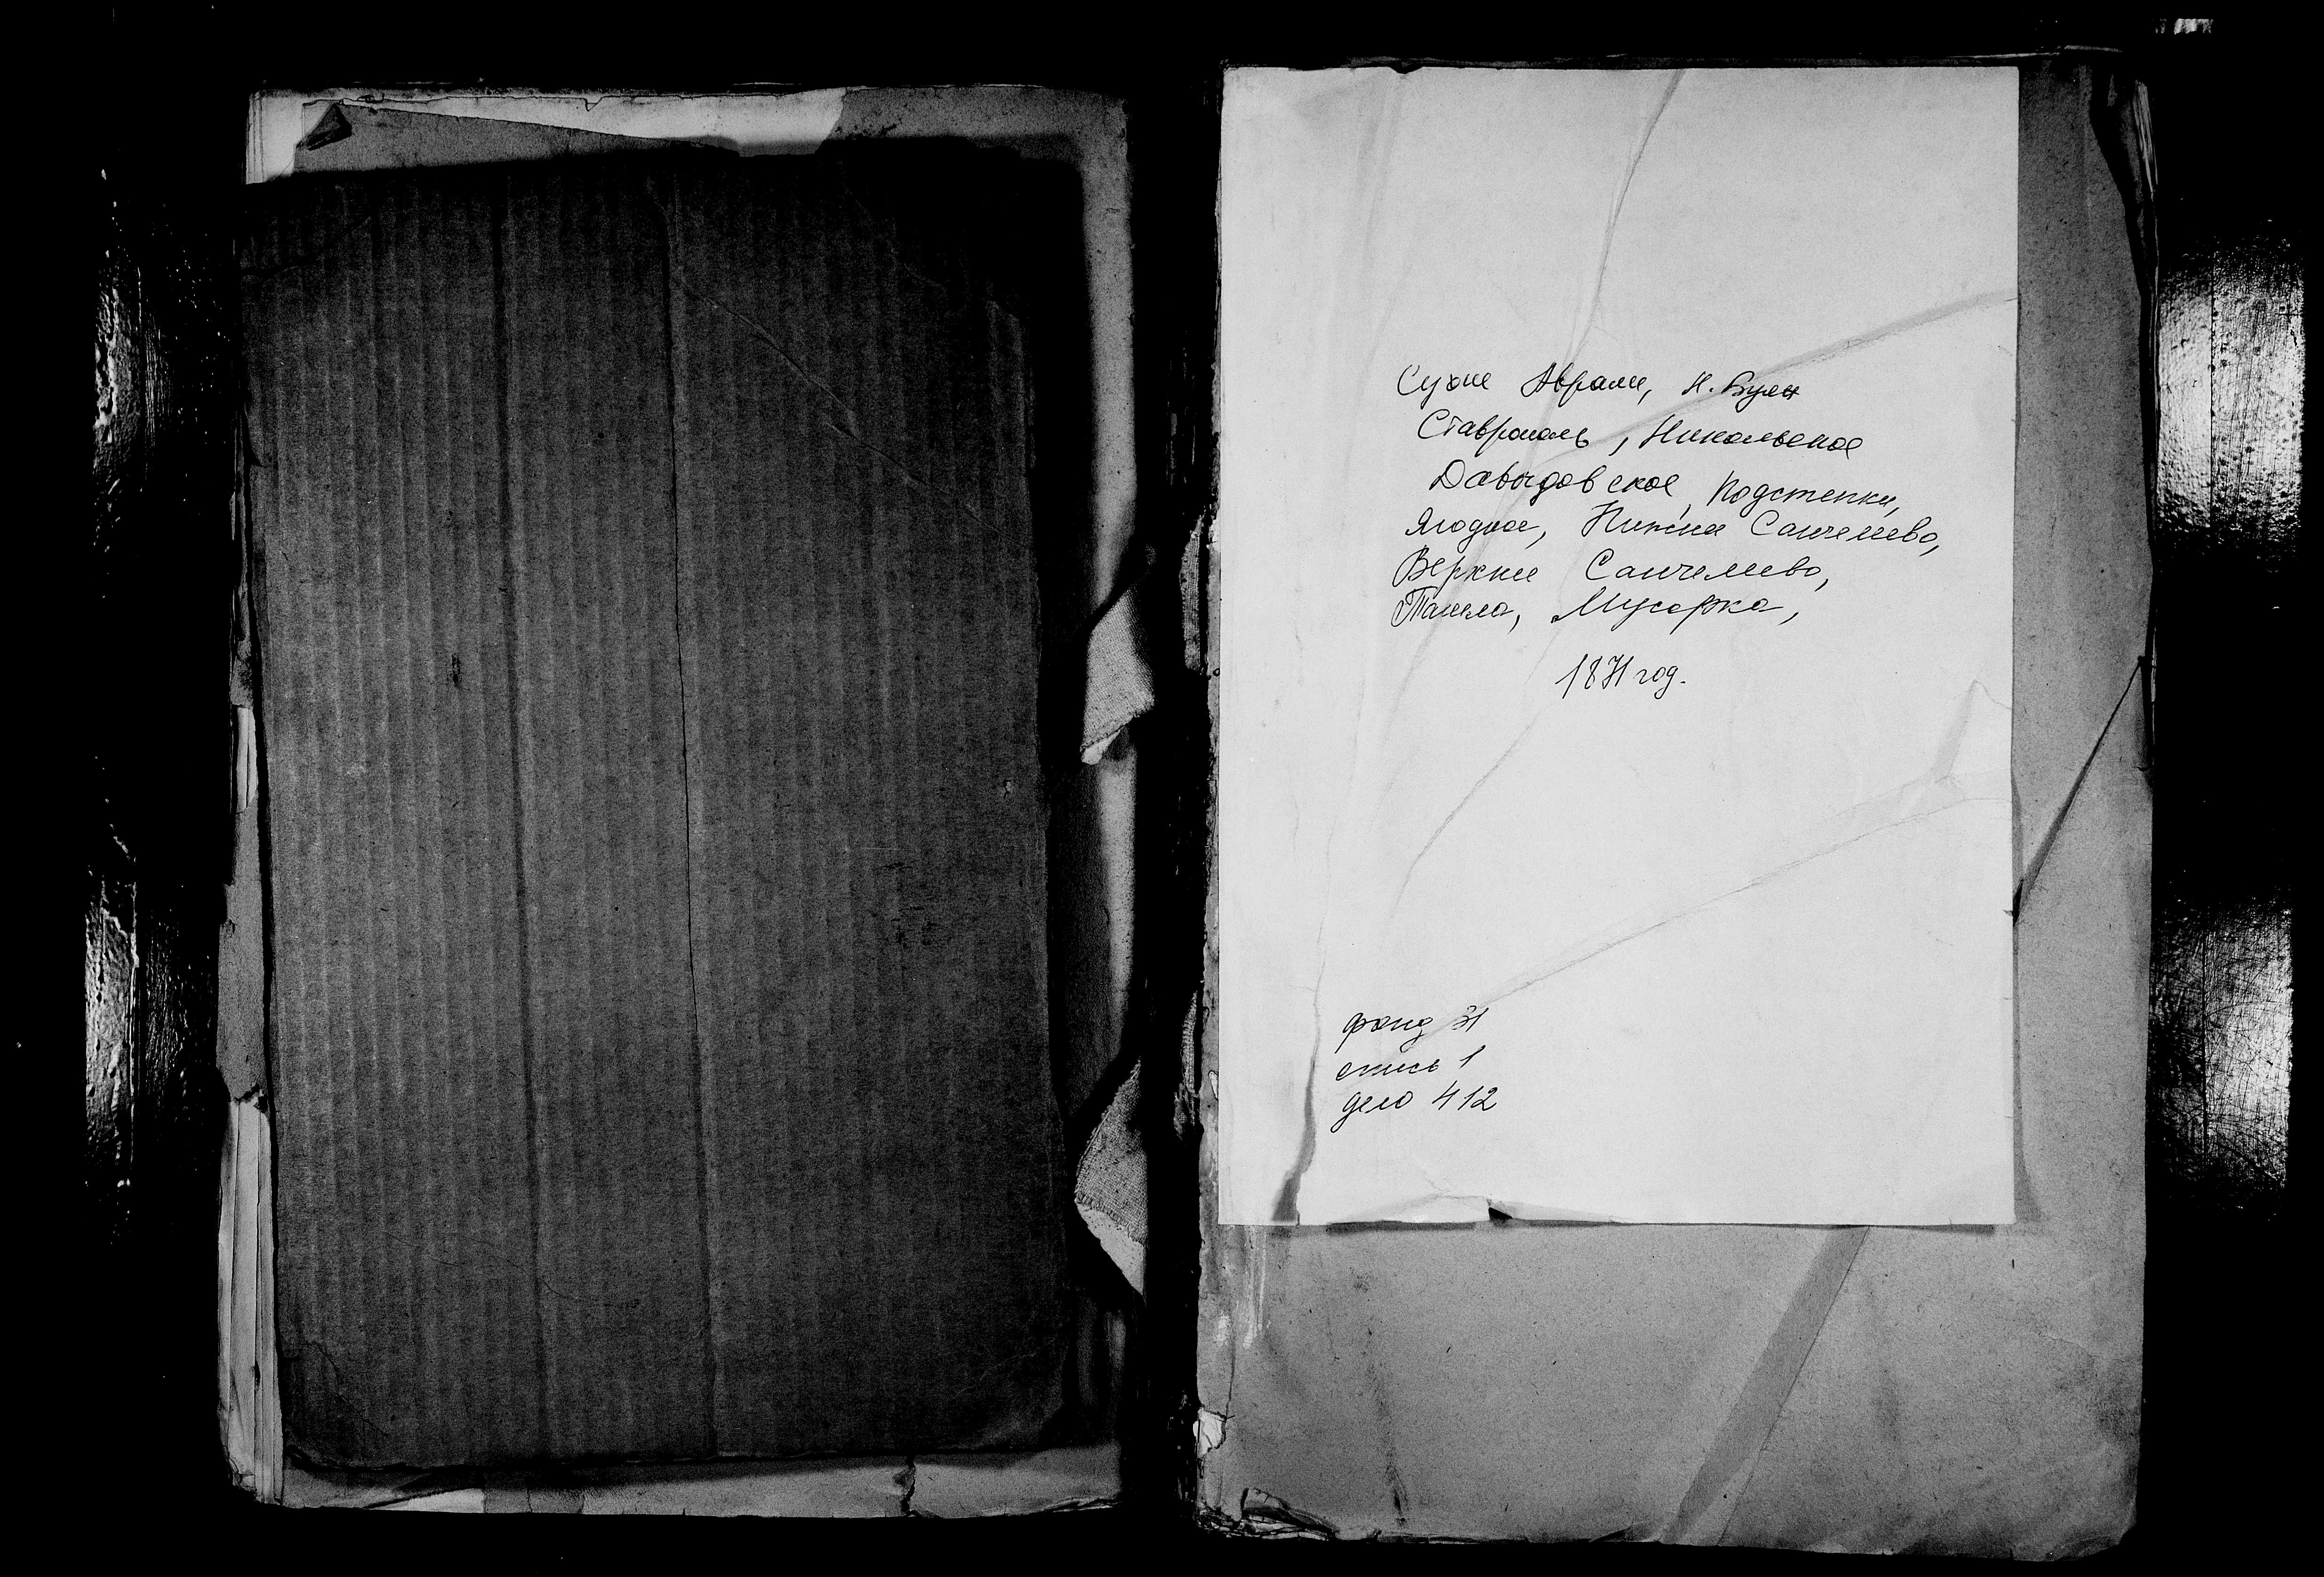 Сухие Аврали, Н. Буян
Ставрополь, Никольское
Давыдовское, Подстепки,
Ягодное, Нижние Санчелеево,
Верхние Санчелеево,
Ташла, Мусорка,
1871 год.
фонд 31
опись 1
дело 412